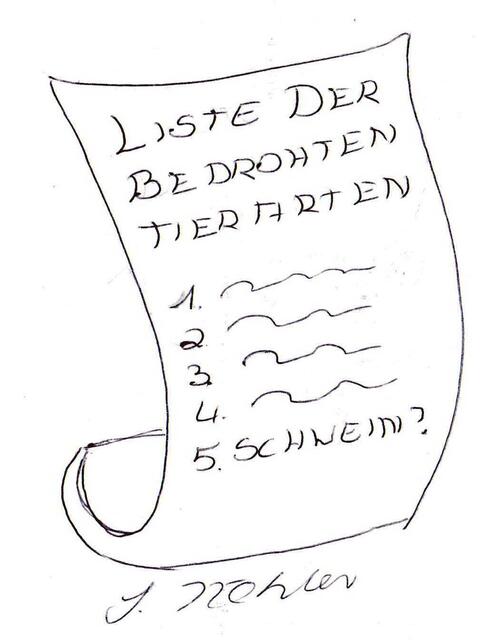 LISTE DER
BEDROHTEN
TIERARTEN
1.
2.
3.
4.
5. SCHWEIN?